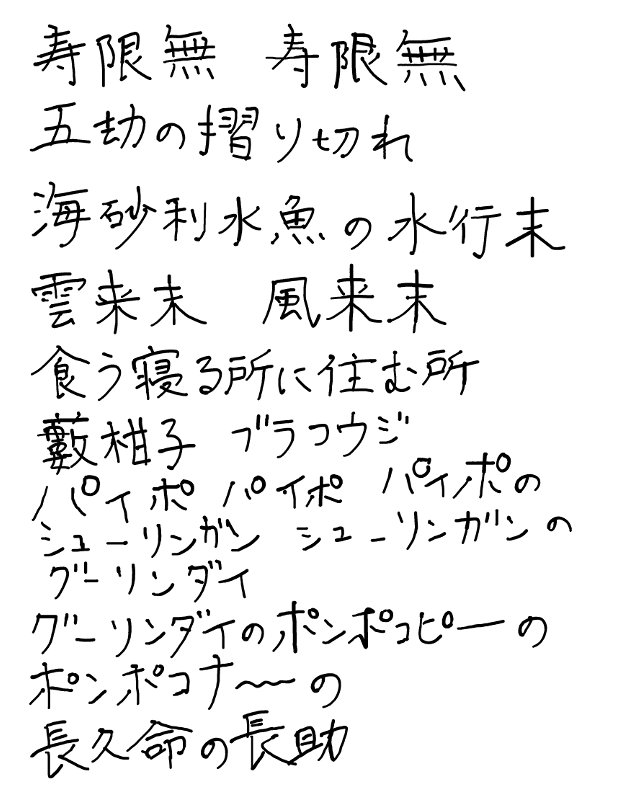 寿限無 寿限無
五劫の摺り切れ
海砂利水魚の水行末
雲来末 風来末
食う寝る所に住む所
藪柑子 ブラコウジ
パイポ パイポ パイポの
シューリンガン シューリンガンの
グーリンダイ
グーリンダイのポンポコピーの
ポンポコナ〜の
長久命の長助